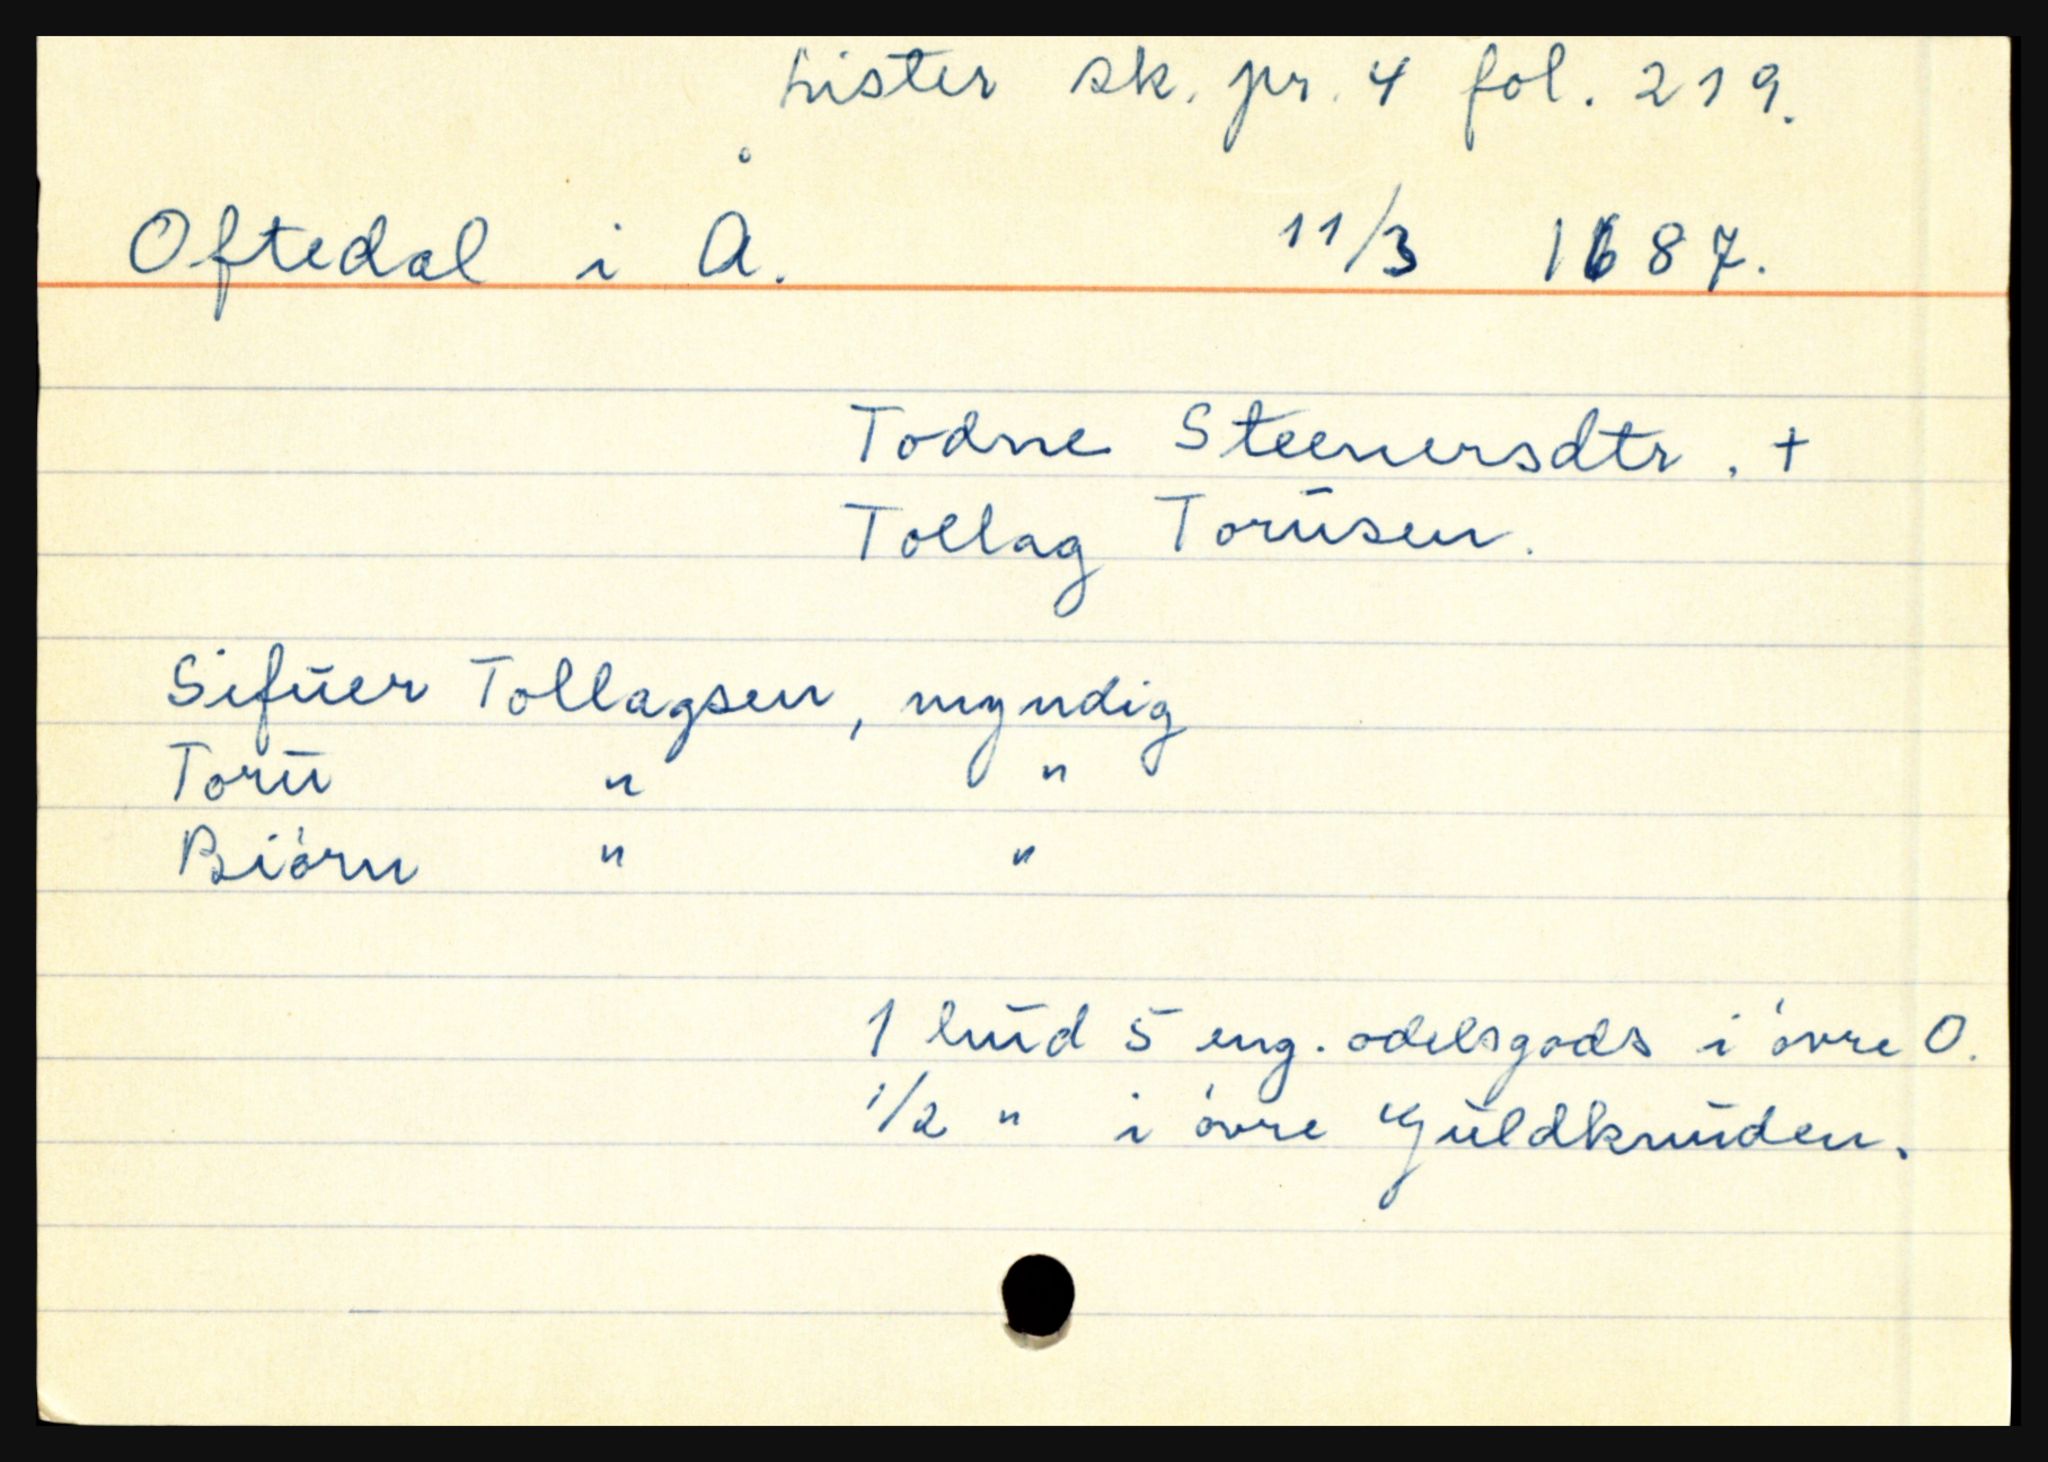 Lister sk. pr. 4 fol. 219.
Oftedal i Å. 11/3 1687.
Todne Steenersdtr. +
Tollag Torūsen.
Sifūer Tollagsen, myndig
Torū " "
Biórn " "
1 hūd 5 eng. odelsgods i óvre O.
1/2 " i óvre Gūldknūden.